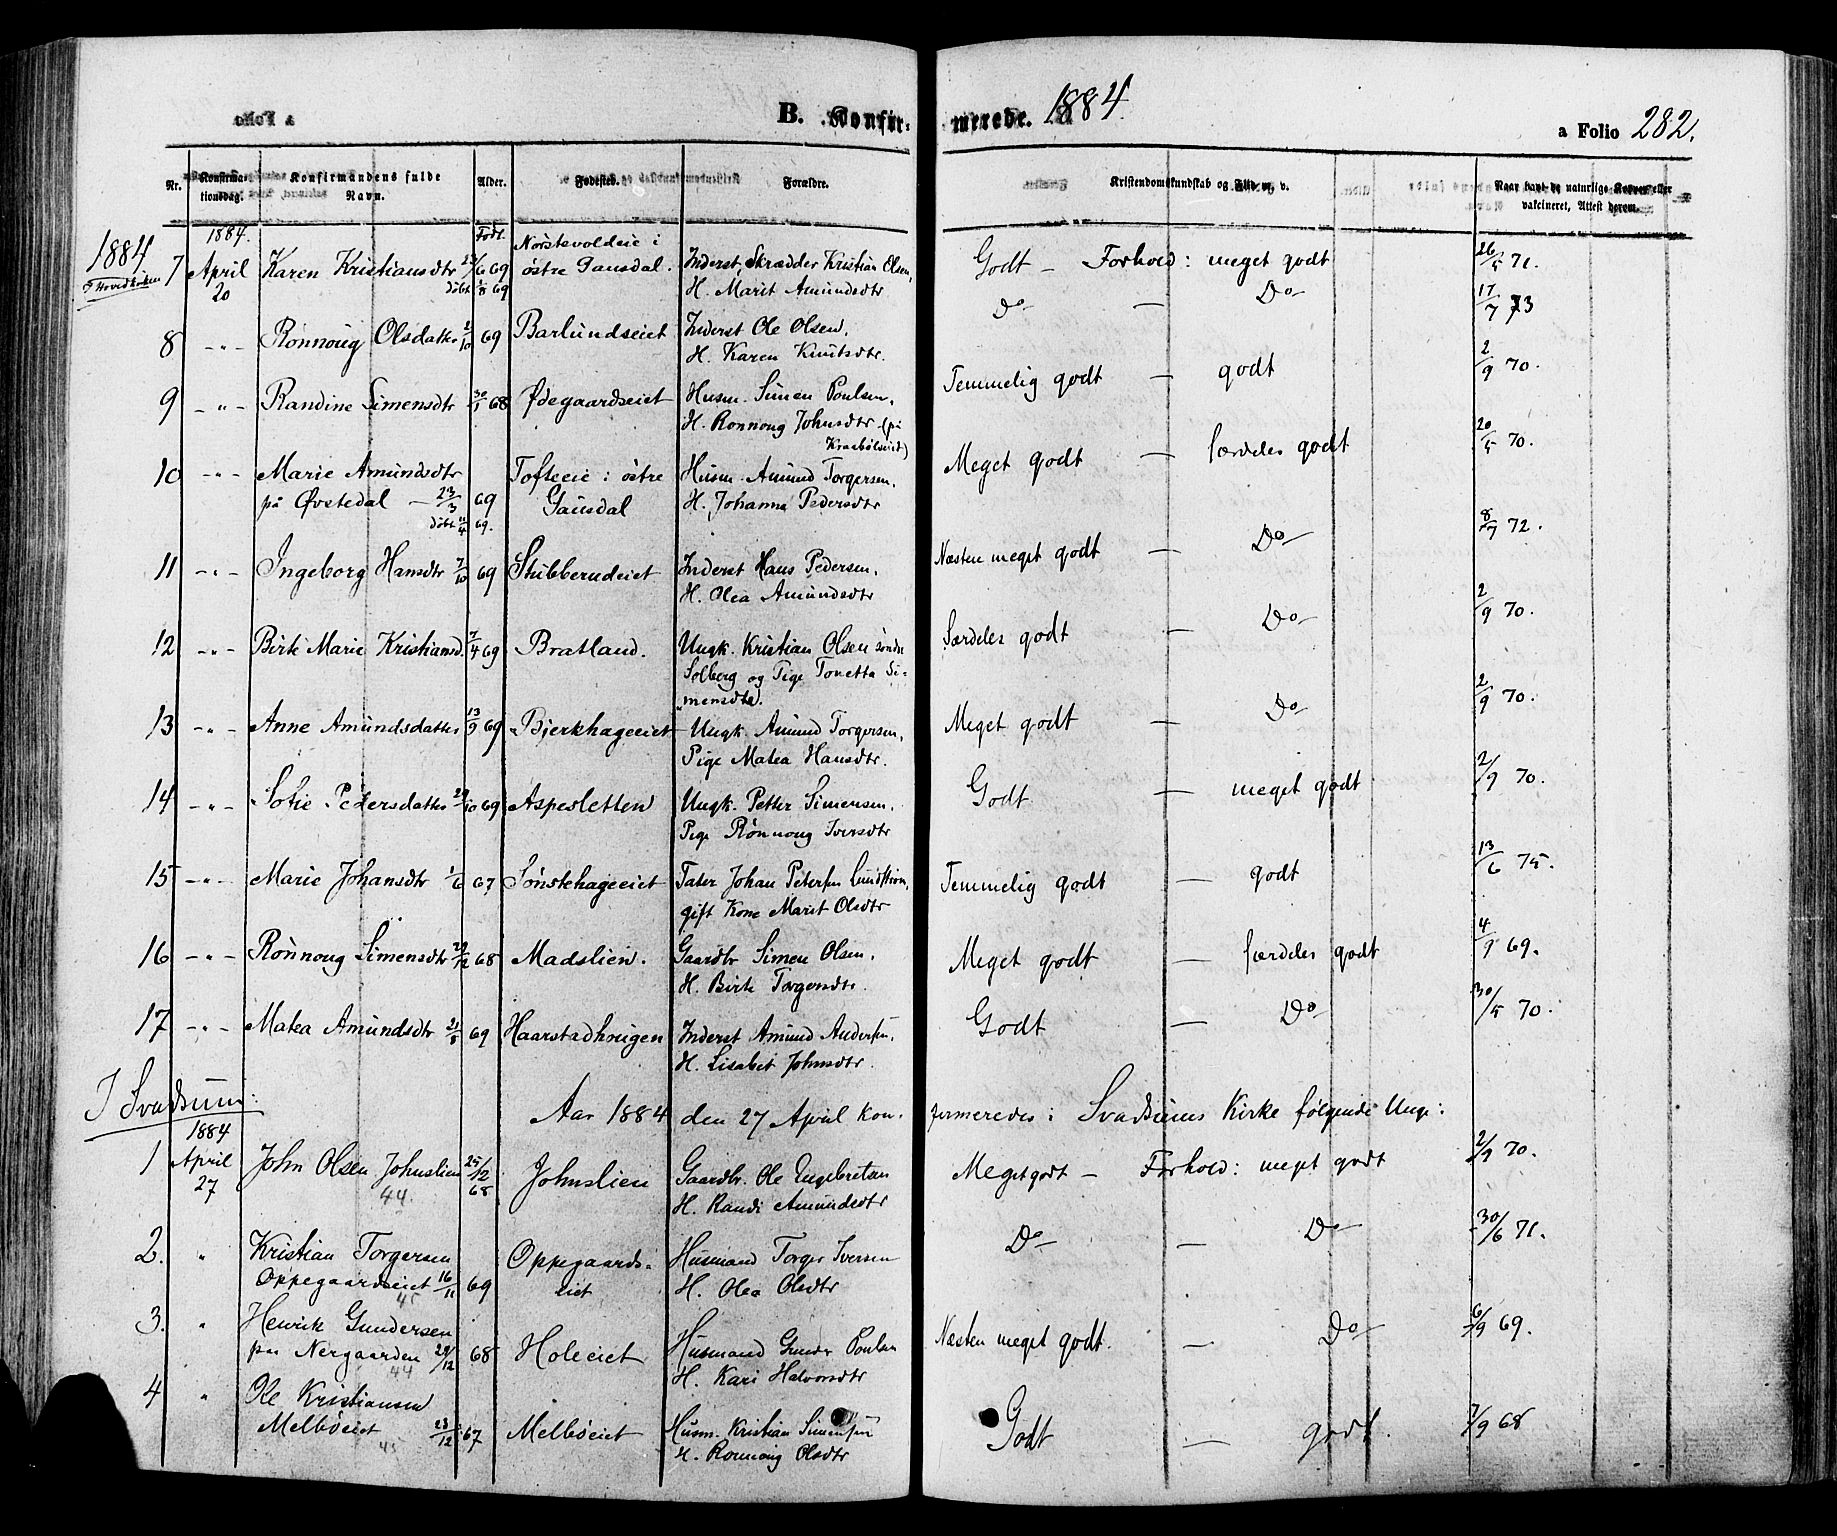 B. Konfirmerede. 1884.
a Folio 282.
Nr. Konfirmationsdag. Konfirmandens fulde Navn. Alder. Fødested. Forældre. Kristendomskundskab og Flid m. v. Naar havt de naturlige Kopper eller vakcineret, Attest derom.
1884
7 1884. April 20 Karen Kristiansdtr Født 6 69 døbt 1/8 69 Norstevoldeie i østre Gausdal. Inderst, Skrædder Kristian Olsen, H. Marit Amundsdtr Godt — Forhold: meget godt 26/5 71.
8 -"- Rønnoug Olsdatter 2/10 69 Barlundseiet Inderst Ole Olsen, H. Karen Knutsdtr. Do — Do 17/7 73
9 -"- Randine Simensdtr 30/1 68 Ødegaardseiet Husm. Simen Poulsen, H. Ronnoug Johnsdtr (på Kraabølseiet) Temmelig godt — godt 2/9 70.
10 -"- Marie Amundsdtr på Øvstedal — 23/3 69 døbt 11/4 69. Tofteeie i østre Gausdal Husm. Amund Torgersen, H. Johanna Pedersdtr Meget godt — særdeles godt 20/5 70.
11 -"- Ingeborg Hansdtr 7/10 69 Stubberudeiet Inderst Hans Pedersen, H. Olea Amundsdtr Næsten meget godt — Do 8/7 72.
12 -"- Birte Marie Kristiansd. 7/4 69 Bratland. Ungk. Kristian Olsen søndre Solberg og Pige Tonetta Simensdtr. Særdeles godt — Do 2/9 70.
13 -"- Anne Amundsdatter 13/9 69 Bjerkhageeiet Ungk. Amund Torgersen, Pige Matea Hansdtr. Meget godt — Do 2/9 70.
14 -"- Sofie Pedersdatter 29/10 69 Aspesletten Ungk. Petter Simensen, Pige Rønnoug Iversdtr Godt — meget godt 2/9 70.
15 -"- Marie Johansdtr 1/6 67 Sønstehageeiet Tater Johan Petersen Lundstrøm, gift Kone Marit Olsdtr Temmelig godt — godt 13/6 75.
16 -"- Rønnoug Simensdtr 29/12 68 Madslien. Gaardbr Simen Olsen, H. Birte Torgersdtr. Meget godt — særdeles godt 4/9 69.
17 -"- Matea Amundsdtr 21/5 69 Haarstadhougen Inderst Amund Andersen, H. Lisabet Johnsdtr. Godt — Do 30/5 70.
I Svadsum: Aar 1884 den 27 April konfirmeredes i Svadsums Kirke følgende Unge:
1 1884 April 27 John Olsen Johnslien 25/12 68 44 Johnslien Gaardbr. Ole Engebretsen H. Randi Amundsdtr Meget godt — Forhold: meget godt 2/9 70.
2. " Kristian Torgersen Oppegaardseiet 16/11 69 45 Oppegaardseiet Husmand Torger Iversen H. Olea Olsdtr Do — Do 30/6 71.
3. " Henrik Gundersen paa Nergaarden 29/12 68 44 Holeeiet Husmand Gunder Poulsen H. Kari Halvorsdtr Næsten meget godt. — Do 6/9 69.
4 " Ole Kristiansen Melbøeiet 23/12 67 45 Melbøeiet Husm. Kristian Simensen H. Ronnaug Olsdtr Godt — godt. 7/9 68